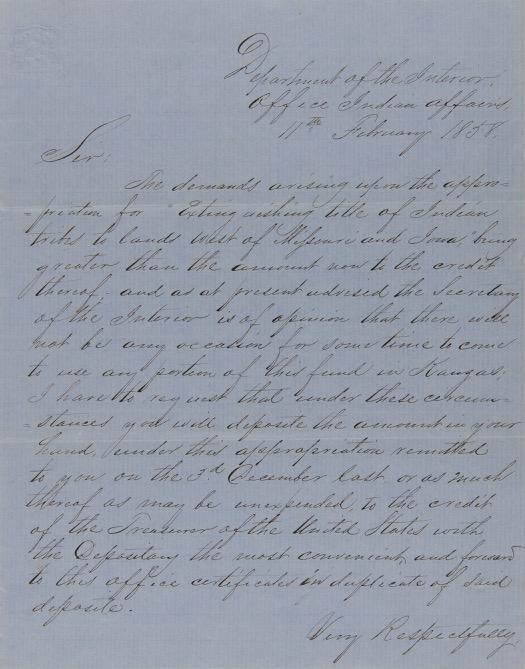 Department of the Interior,
Office Indian affairs,
11th February 1858.
Sir:
The demands arising upon the appro-
-priation for "Extinguishing title of Indian
tribes to lands West of Missouri and Iowa" being
greater than the amount now to the credit
thereof, and as at present advised the Secretary
of the Interior is of opinion that there will
not be any occasion for some time to come
to use any portion of this fund in Kansas;
I have to request that under these circum-
-stances you will deposite the amount in your
hand, under this appropriation remitted
to you on the 3d December last, or as much
thereof as may be unexpended, to the credit
of the Treasurer of the United States with
the Depositary the most convenient, and forward
to this office certificates in duplicate of said
deposite.
Very Respectfully,